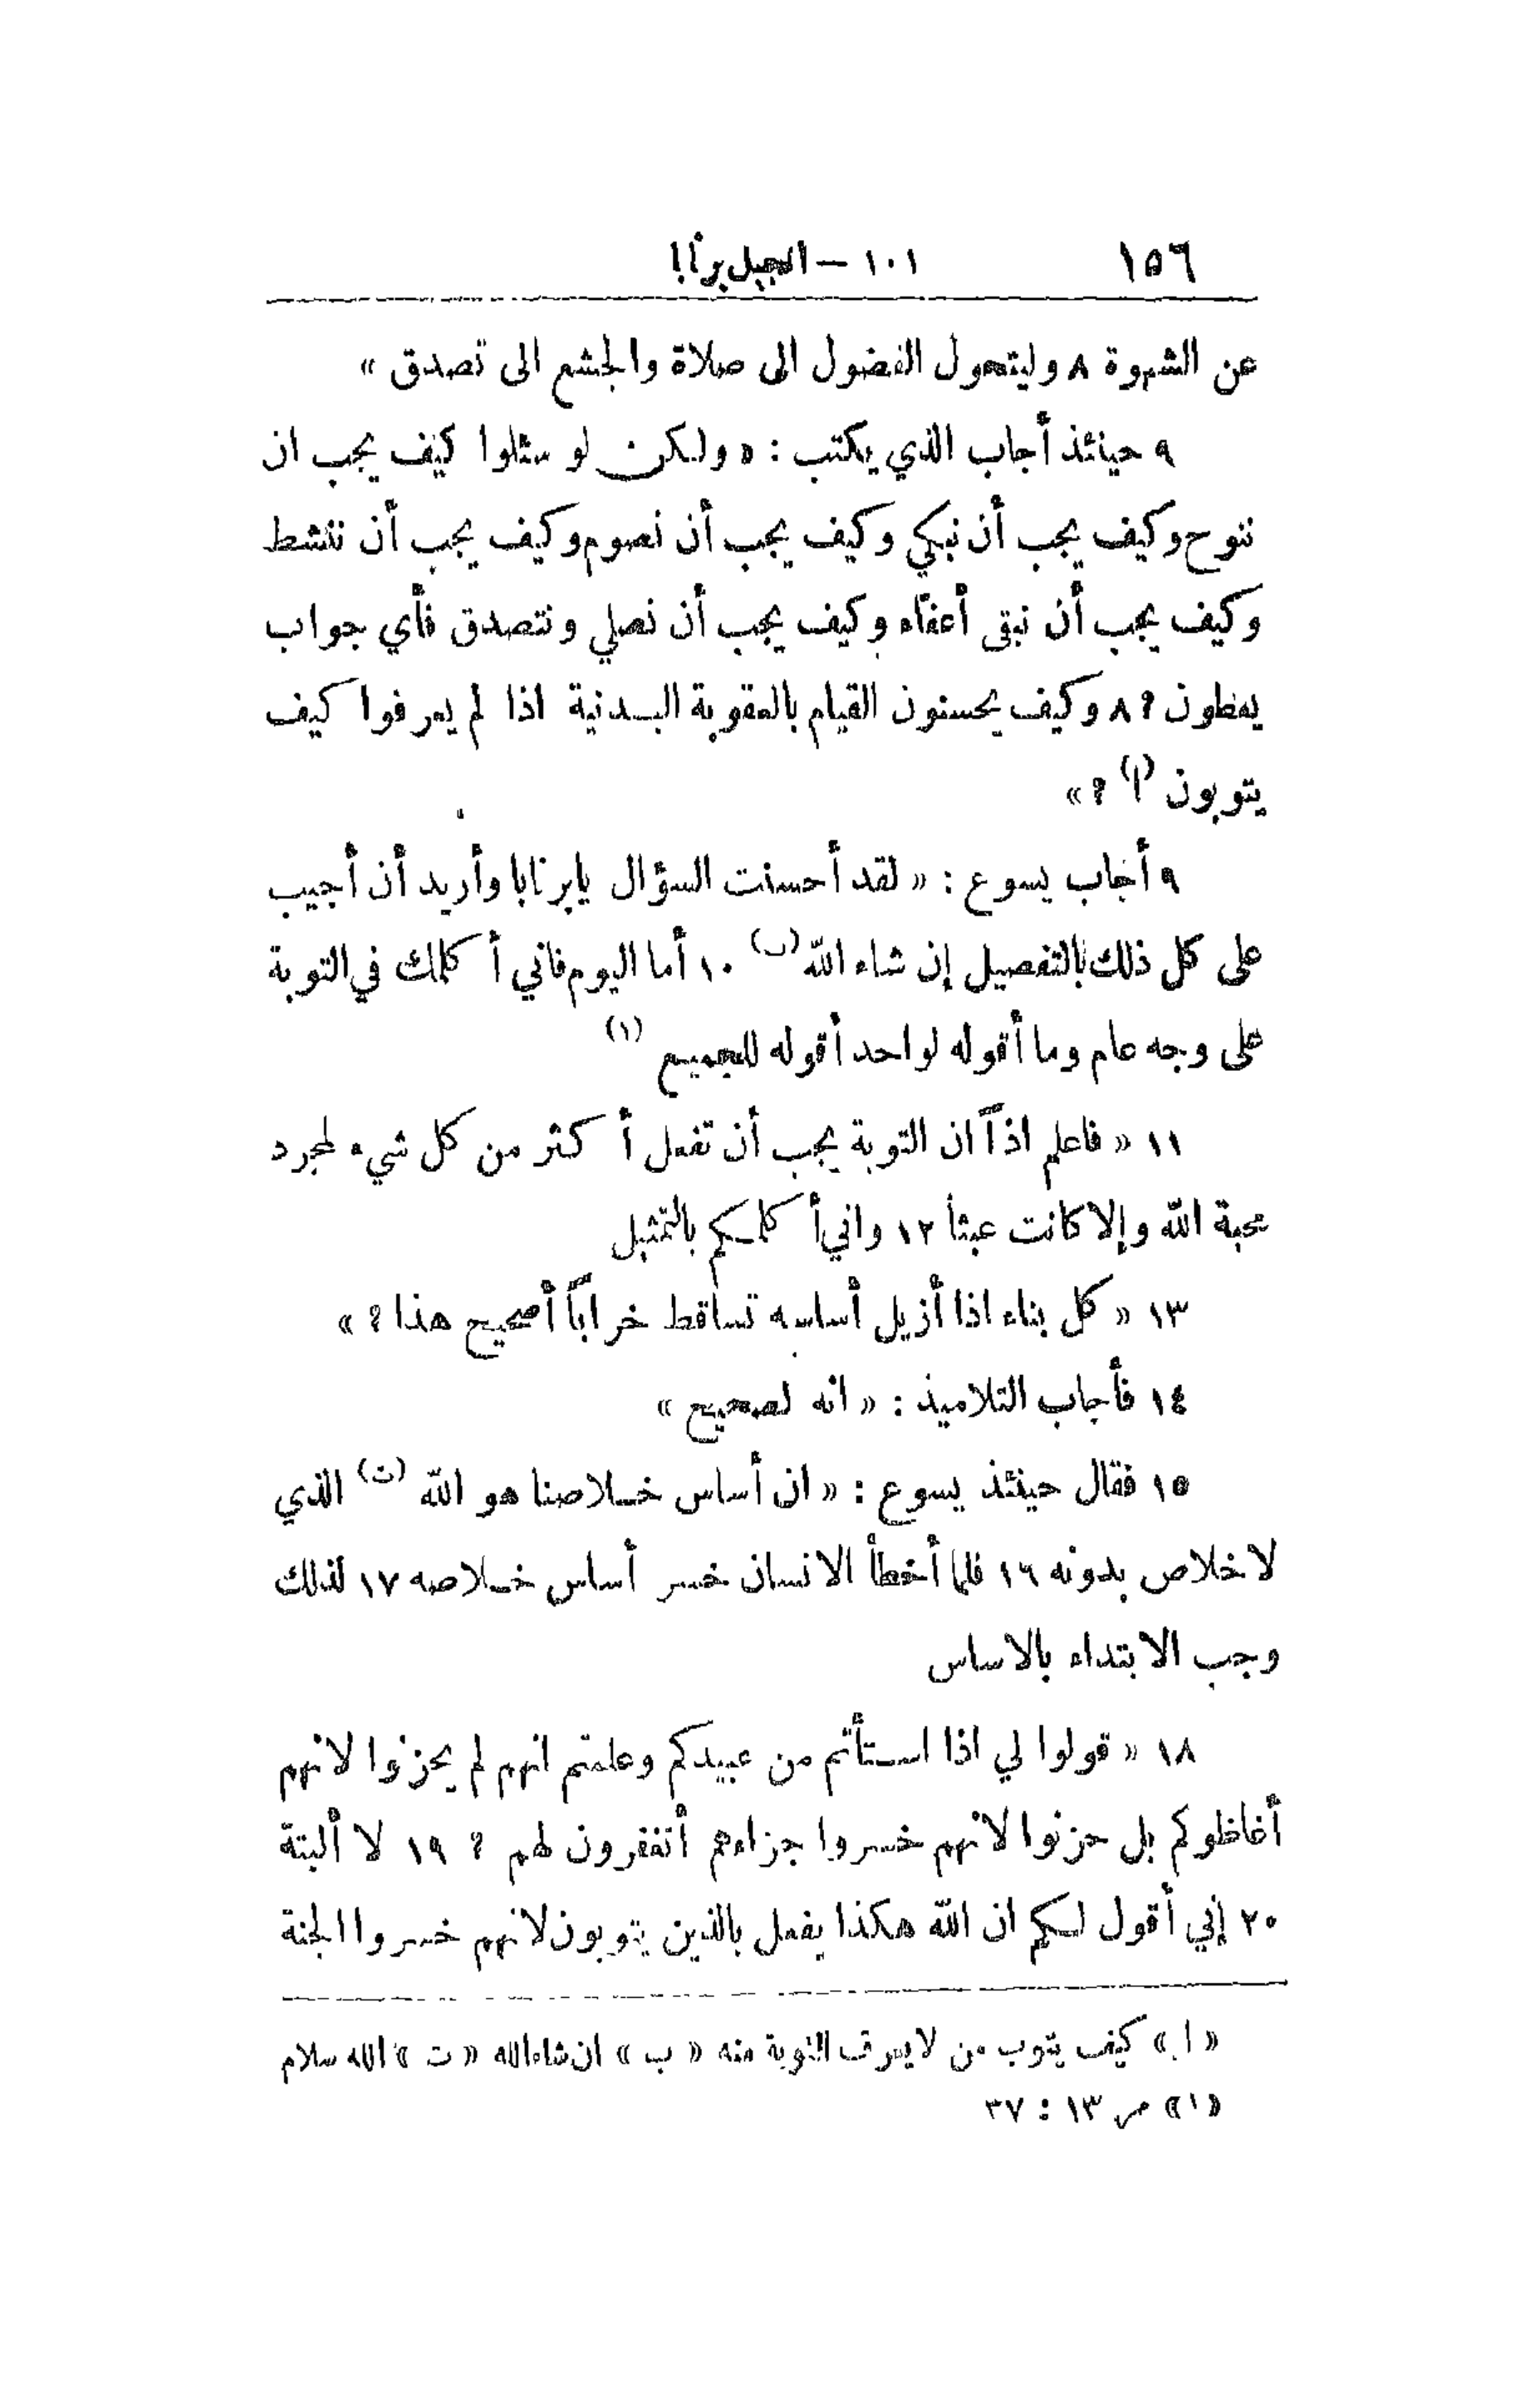 ١٥٦ ١٠١ — انجيل برنابا
عن الشهوة ٨ وليتحول الفضول الى صلاة والجشع الى تصدق »
٩ حينئذ أجاب الذي يكتب : « ولكن لو سئلوا كيف يجب ان
ننوح وكيف يجب أن نبكي وكيف يجب أن نصوم وكيف يجب أن ننشط
وكيف يجب أن نبقى أعفاء وكيف يجب أن نصلي ونتصدق فأي جواب
يعطون ؟ ٨ وكيف يحسنون القيام بالعقوبة البدنية اذا لم يعرفوا كيف
يتوبون (ا) ؟ »
٩ أجاب يسوع : « لقد أحسنت السؤال يابرنابا وأريد أن أجيب
على كل ذلك بالتفصيل إن شاء الله (ب) ١٠ أما اليوم فاني أكلمك في التوبة
على وجه عام وما أقوله لواحد أقوله للجميع (١)
١١ « فاعلم اذاً ان التوبة يجب أن تفعل أكثر من كل شيء لمجرد
محبة الله وإلا كانت عبثا ١٢ واني أكلمكم بالتمثيل
١٣ « كل بناء اذا أزيل أساسه تساقط خراباً أصحيح هذا ؟ »
١٤ فأجاب التلاميذ : « انه لصحيح »
١٥ فقال حينئذ يسوع : « ان أساس خلاصنا هو الله (ت) الذي
لا خلاص بدونه ١٦ فلما أخطأ الانسان خسر أساس خلاصه ١٧ لذلك
وجب الابتداء بالاساس
١٨ « قولوا لي اذا استأتم من عبيدكم وعلمتم انهم لم يحزنوا لانهم
أغاظوكم بل حزنوا لانهم خسروا جزاءهم أتغفرون لهم ؟ ١٩ لا ألبتة
٢٠ إني أقول لكم ان الله هكذا يفعل بالذين يتوبون لانهم خسروا الجنة
« ا » كيف يتوب من لا يعرف التوبة منه « ب » ان شاء الله « ت » الله سلام
«١» مر ١٣ : ٣٧